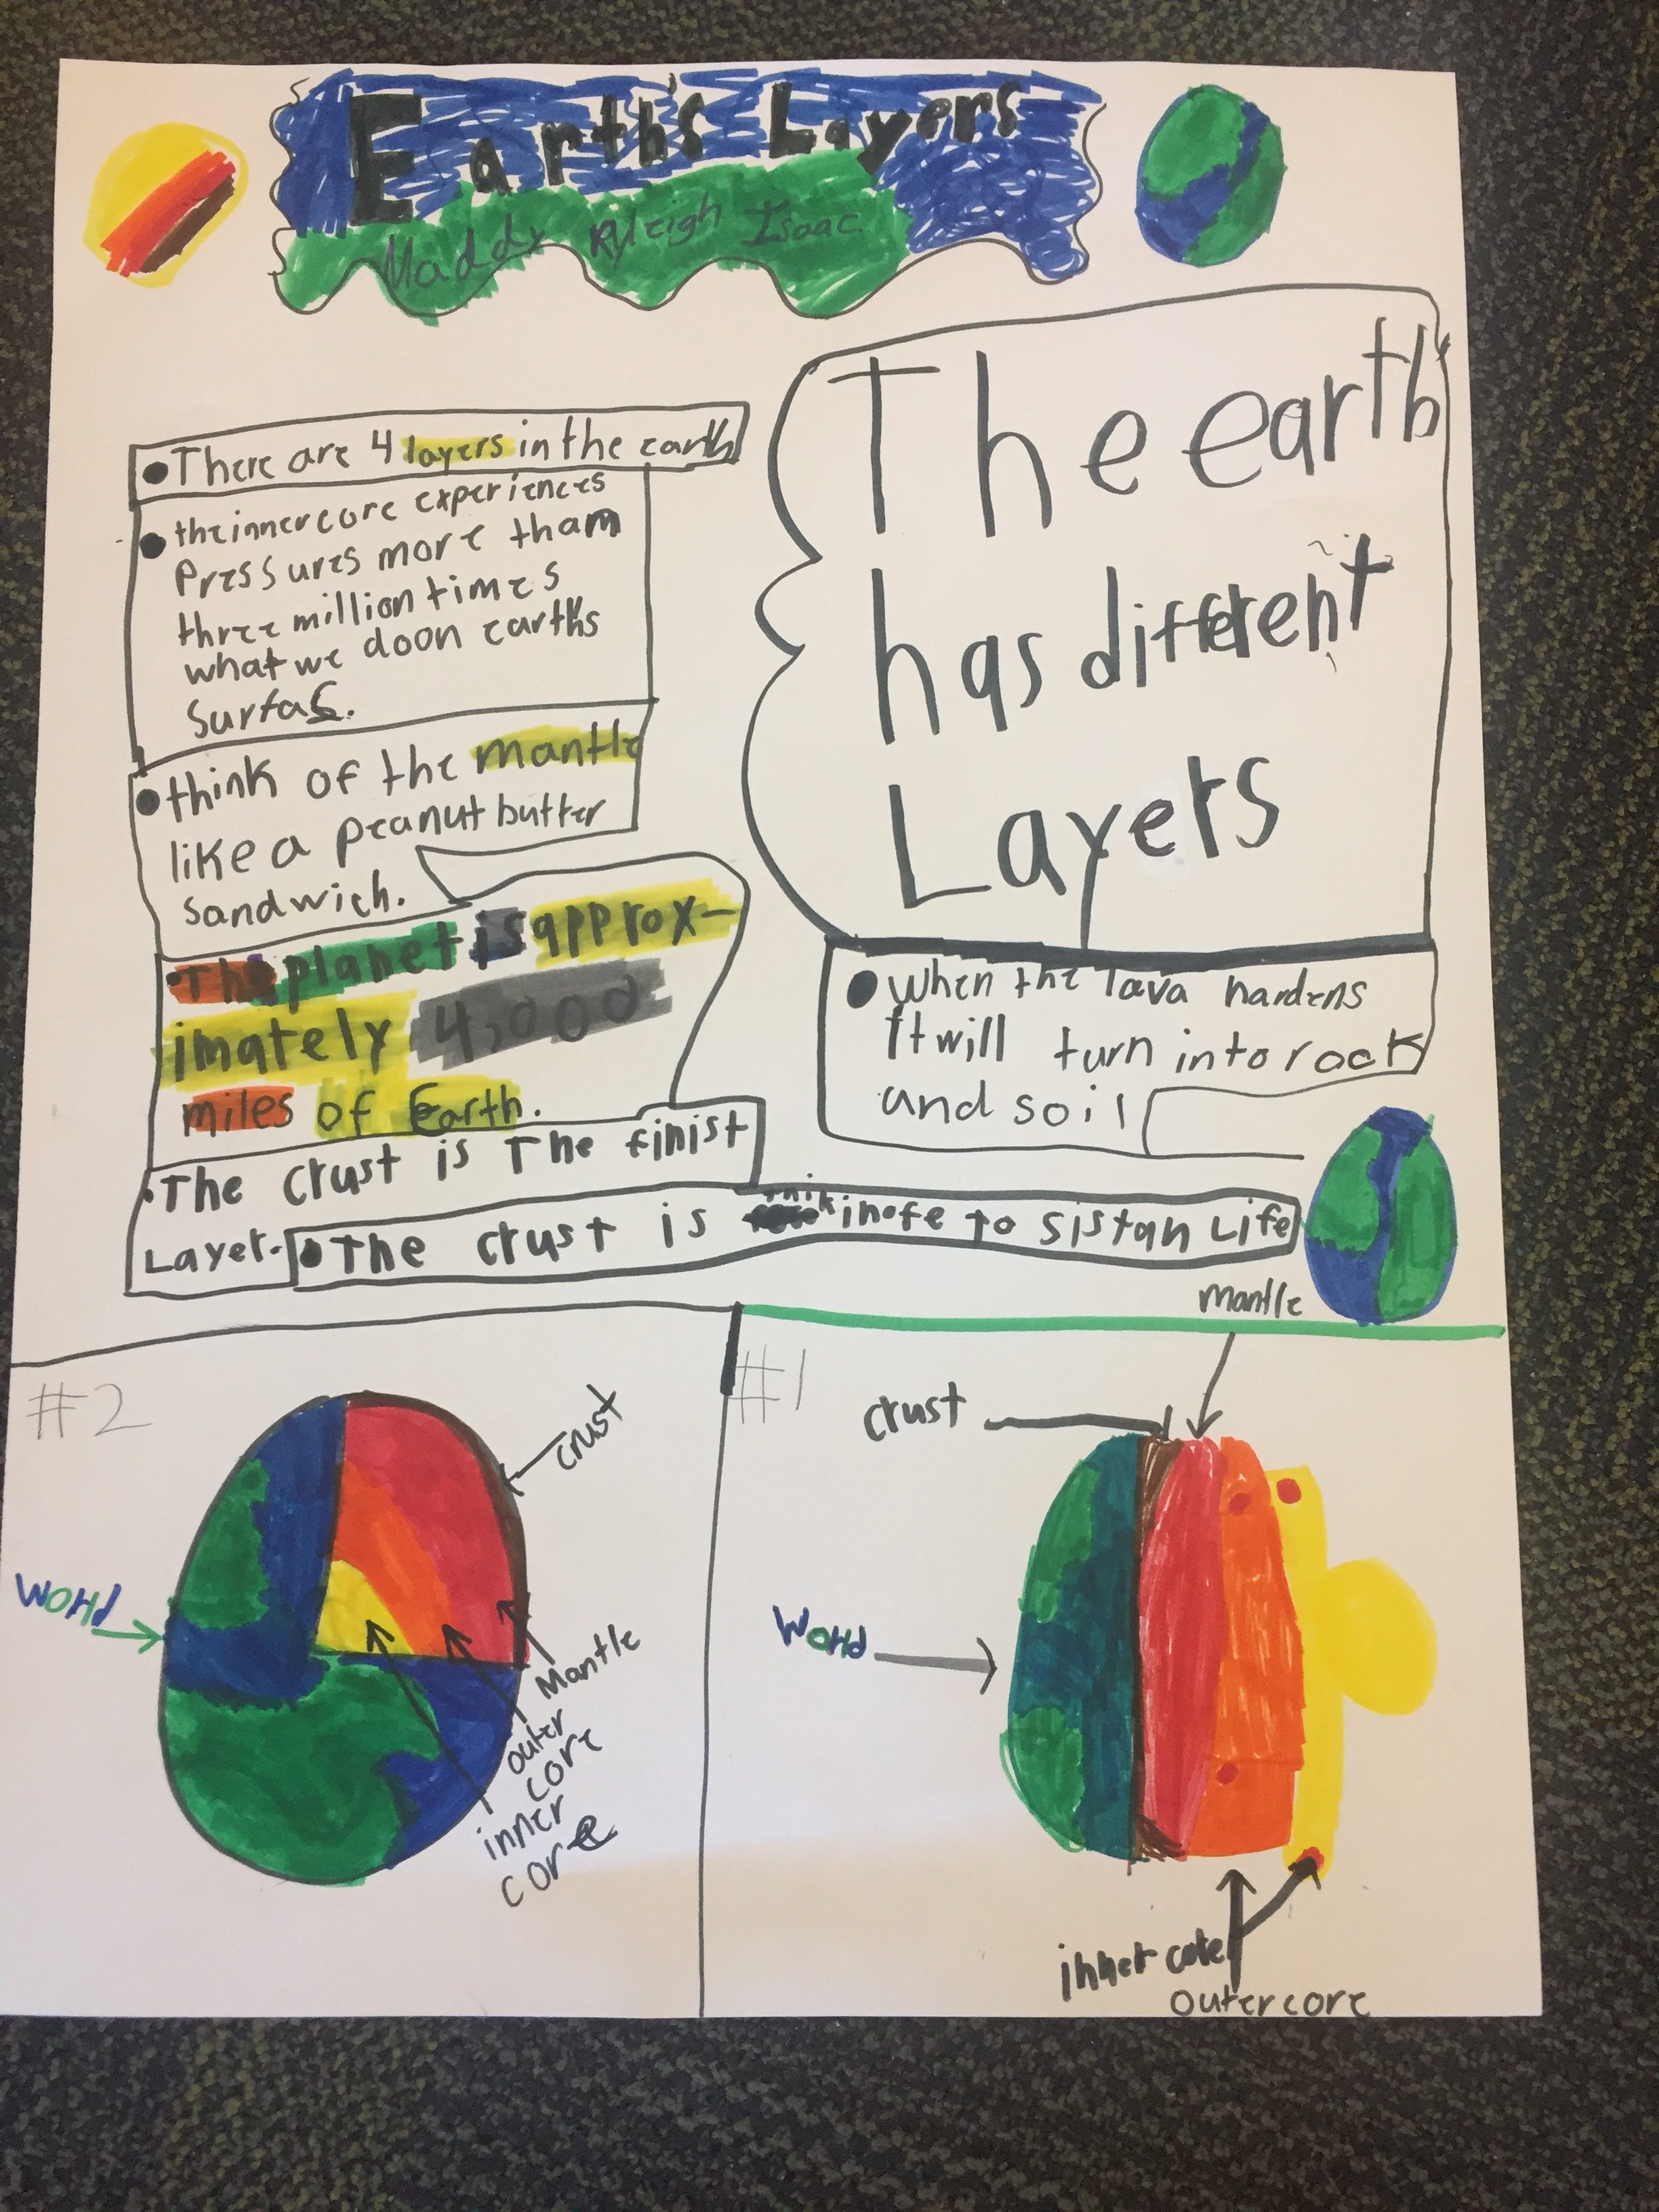 Earth's Layers
Maddy Ryleigh Isaac
The earth
has different
Layers
• There are 4 layers in the earth
• the inner core experiences
Pressures more tham
three million times
what we do on earths
surfas.
• think of the mantle
like a peanut butter
sandwich.
• The planet is approx-
imately 4,000
miles of Earth.
• The crust is The finist
Layer.
• The crust is thik inofe to sistan Life
• when the lava hardens
It will turn into rock
and soil
#2
crust
World
Mantle
outer
core
inner
core
#1
mantle
crust
World
inner core
outer core